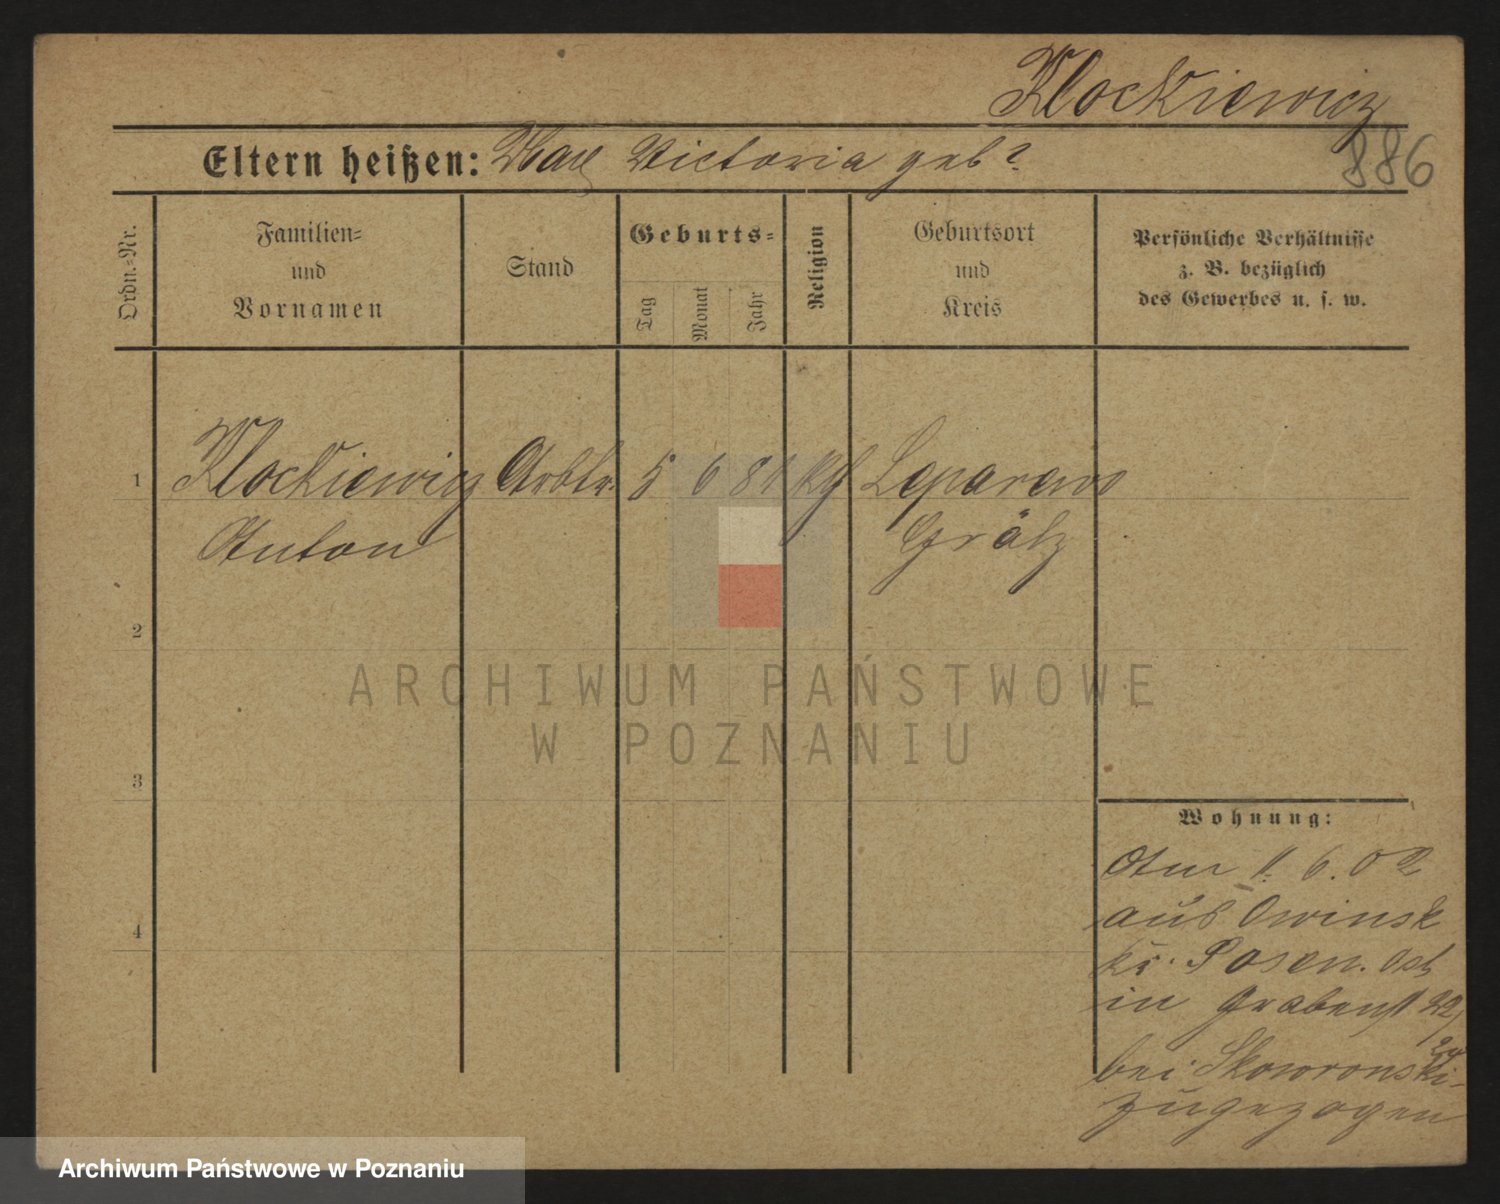 Klockiewicz
Eltern heißen: Max Victoria geb?
886
Ordn.=Nr.
Familien=
und
Vornamen
Stand
Geburts=
Tag
Monat
Jahr
Religion
Geburtsort
und
Kreis
Persönliche Verhältnisse
z. B. bezüglich
des Gewerbes u. s. w.
1 Klockiewicz Arbtr. 5 6 81 kth
Anton Grätz
2
3
4
Wohnung:
Am 6.02
aus Owinsk
Kr. Posen. Ost
in Grabenst 22/
24
bei Skowronski
zugezogen
ARCHIWUM PAŃSTWOWE
W POZNANIU
Archiwum Państwowe w Poznaniu